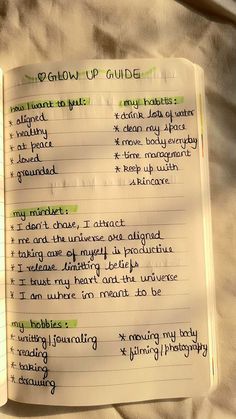 ♡GLOW UP GUIDE
how I want to feel:
* aligned
* healthy
* at peace
* loved
* grounded
my habits:
* drink lots of water
* clean my space
* move body everyday
* time management
* keep up with
skincare
my mindset:
* I don't chase, I attract
* me and the universe are aligned
* taking care of myself is productive
* I release limiting beliefs
* I trust my heart and the universe
* I am where im meant to be
my hobbies:
* writting/journaling
* reading
* baking
* drawing
* moving my body
* filming/photography